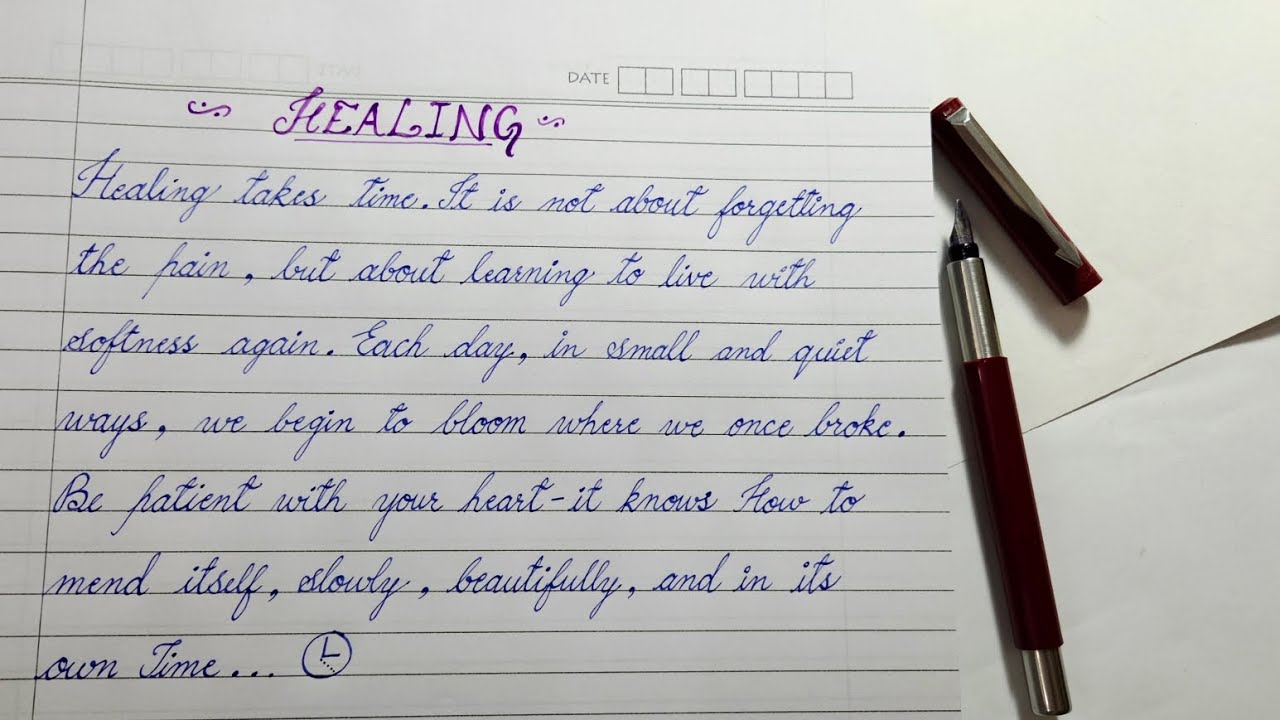 DATE
HEALING
Healing takes time. It is not about forgetting
the pain, but about learning to live with
softness again. Each day, in small and quiet
ways, we begin to bloom where we once broke.
Be patient with your heart-it knows How to
mend itself, slowly, beautifully, and in its
own Time...